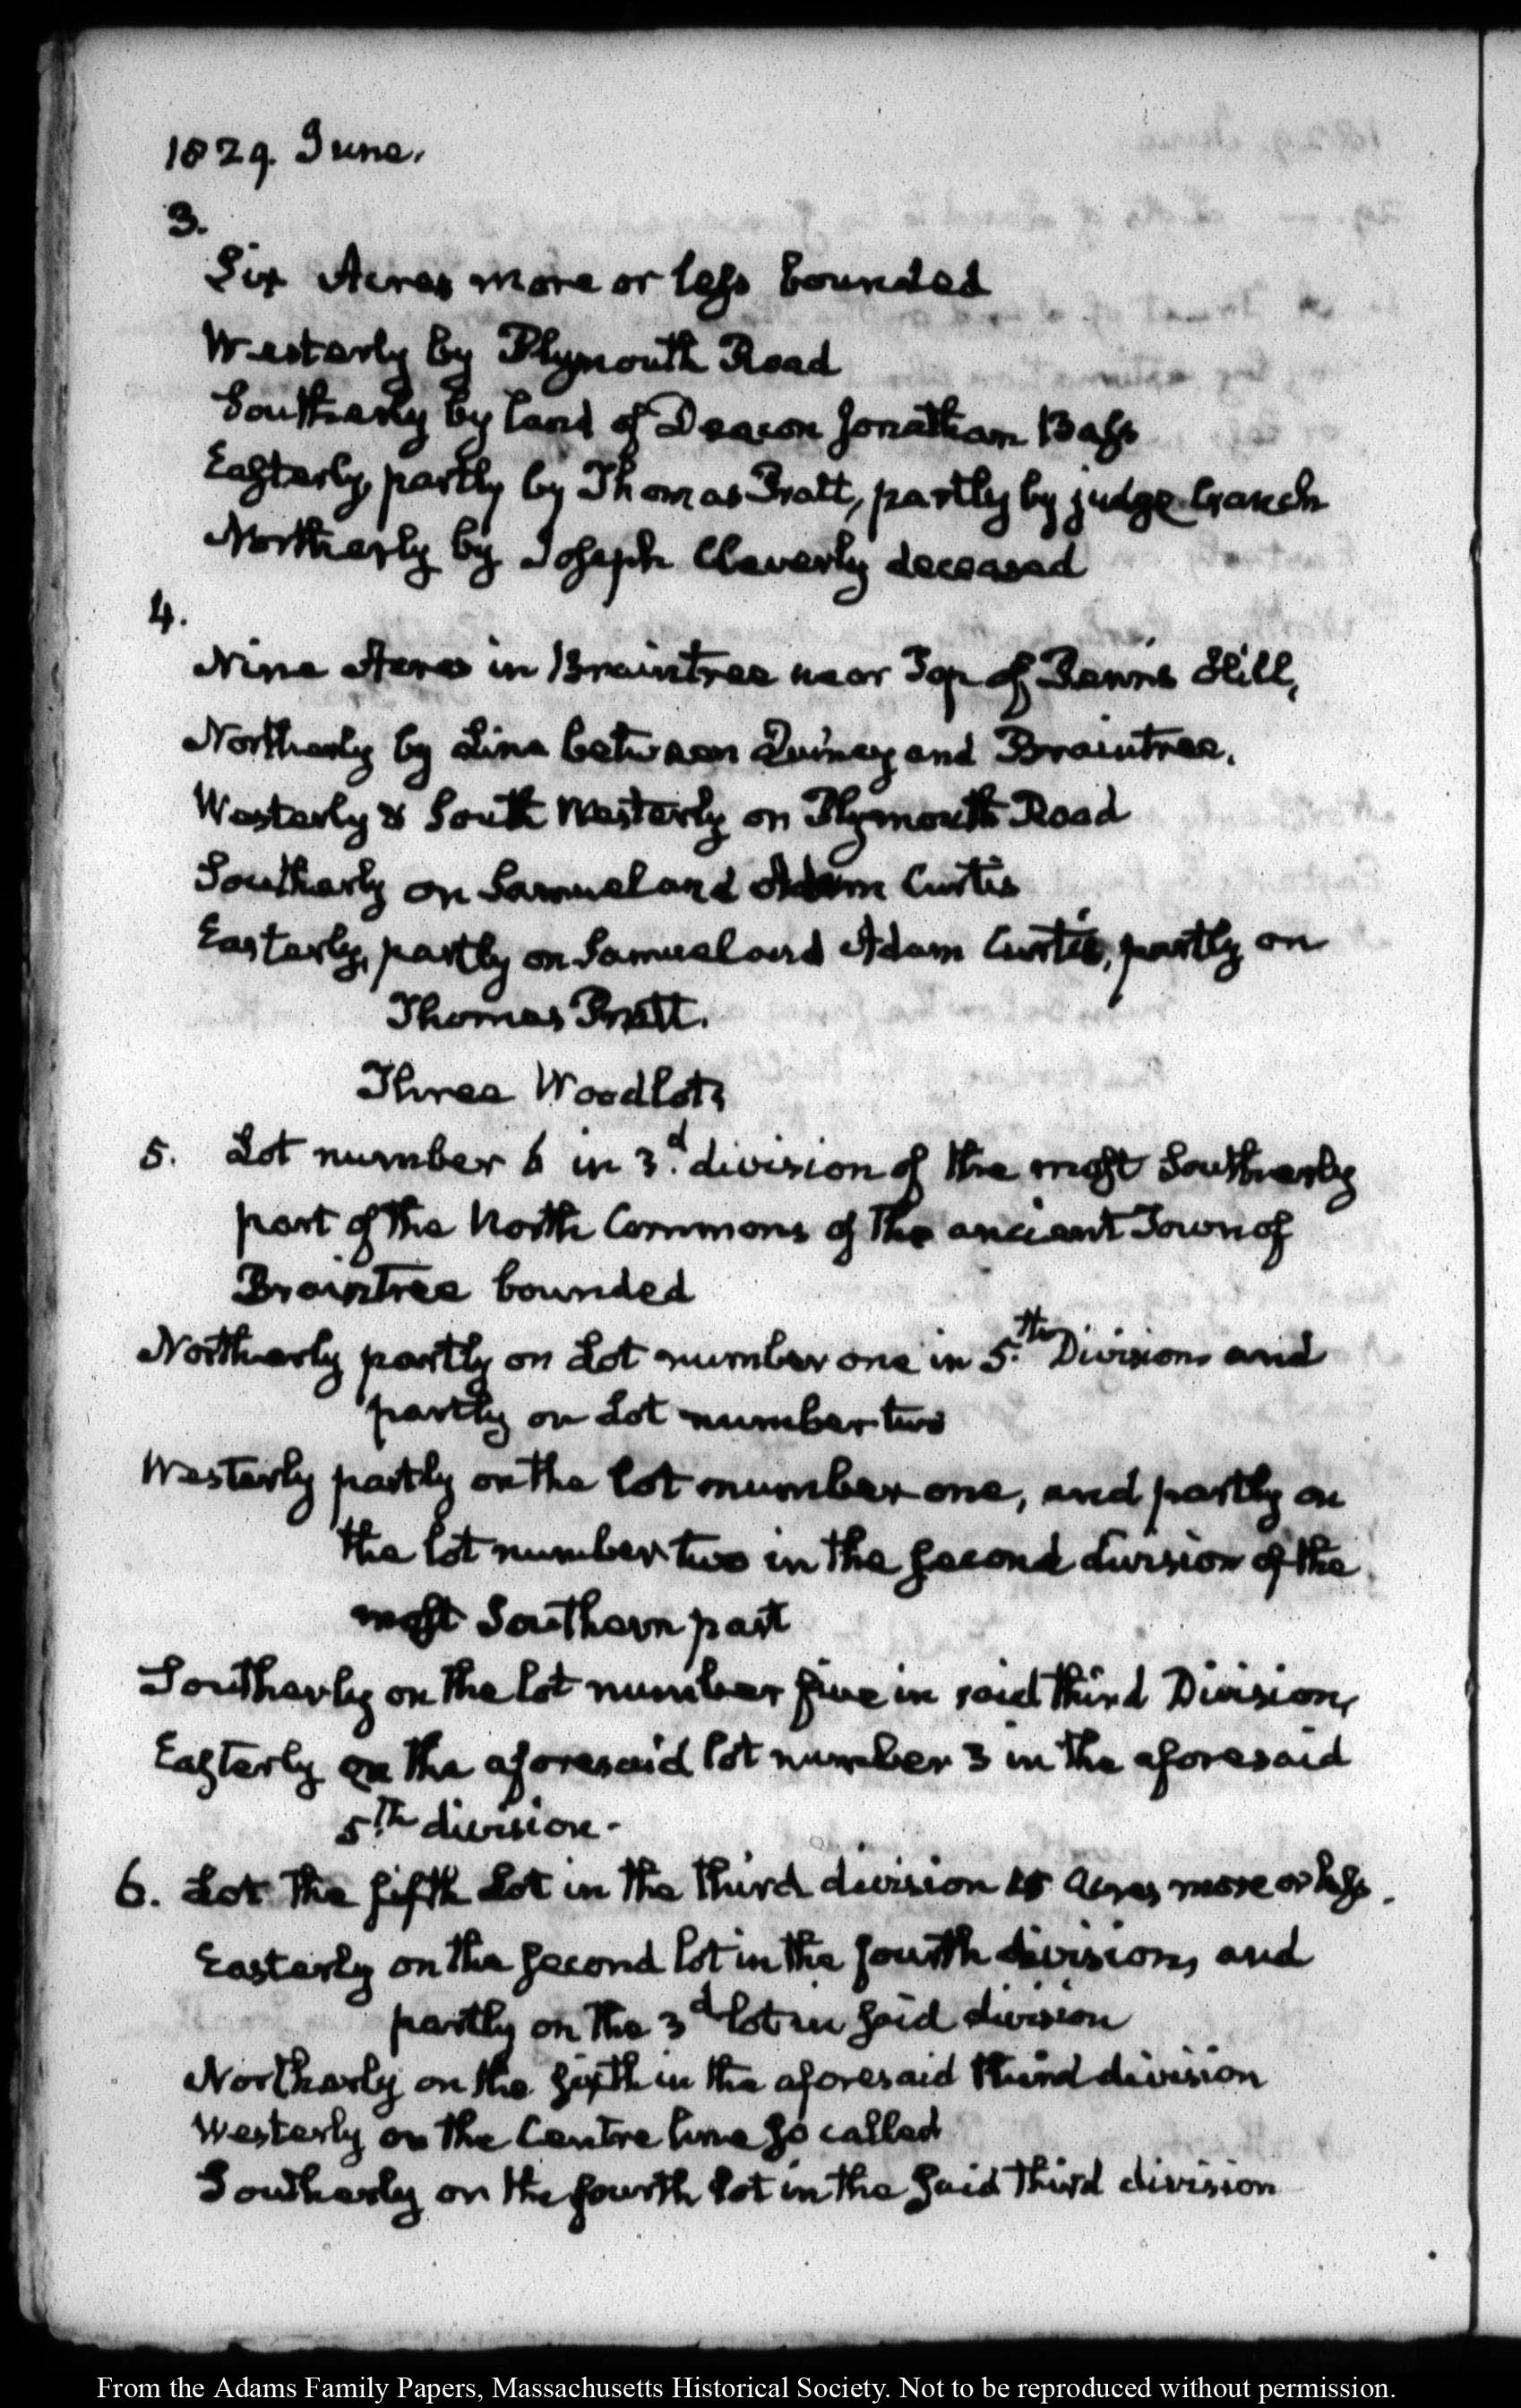 1829. June.
3.
Six Acres more or leſs bounded
Westerly by Plymouth Road
Southerly by land of Deacon Jonathan Baſs
Eaſterly, partly by Thomas Pratt, partly by judge Cranch
Northerly by Joſeph Cleverly deceased
4.
Nine Acres in Braintree near Top of Penn's Hill,
Northerly by Line between Quincy and Braintree.
Westerly & South Westerly on Plymouth Road
Southerly on Samuel and Adam Curtis
Easterly, partly on Samuel and Adam Curtis, partly on
Thomas Pratt.
Three Woodlots
5. Lot number 6 in 3.d division of the moſt Southerly
part of the North Commons of the ancient Town of
Braintree bounded
Northerly partly on Lot number one in 5.th Division and
partly on Lot number two
Westerly partly on the lot number one, and partly on
the lot number two in the ſecond division of the
moſt Southern part
Southerly on the lot number five in said third Division,
Eaſterly on the aforesaid lot number 3 in the aforesaid
5th division.
6. Lot the fifth Lot in the third division 15 Acres more or leſs.
Easterly on the ſecond lot in the fourth division, and
partly on the 3d lot in ſaid division
Northerly on the ſixth in the aforesaid third division
Westerly on the Centre line ſo called
Southerly on the fourth lot in the ſaid third division
From the Adams Family Papers, Massachusetts Historical Society. Not to be reproduced without permission.